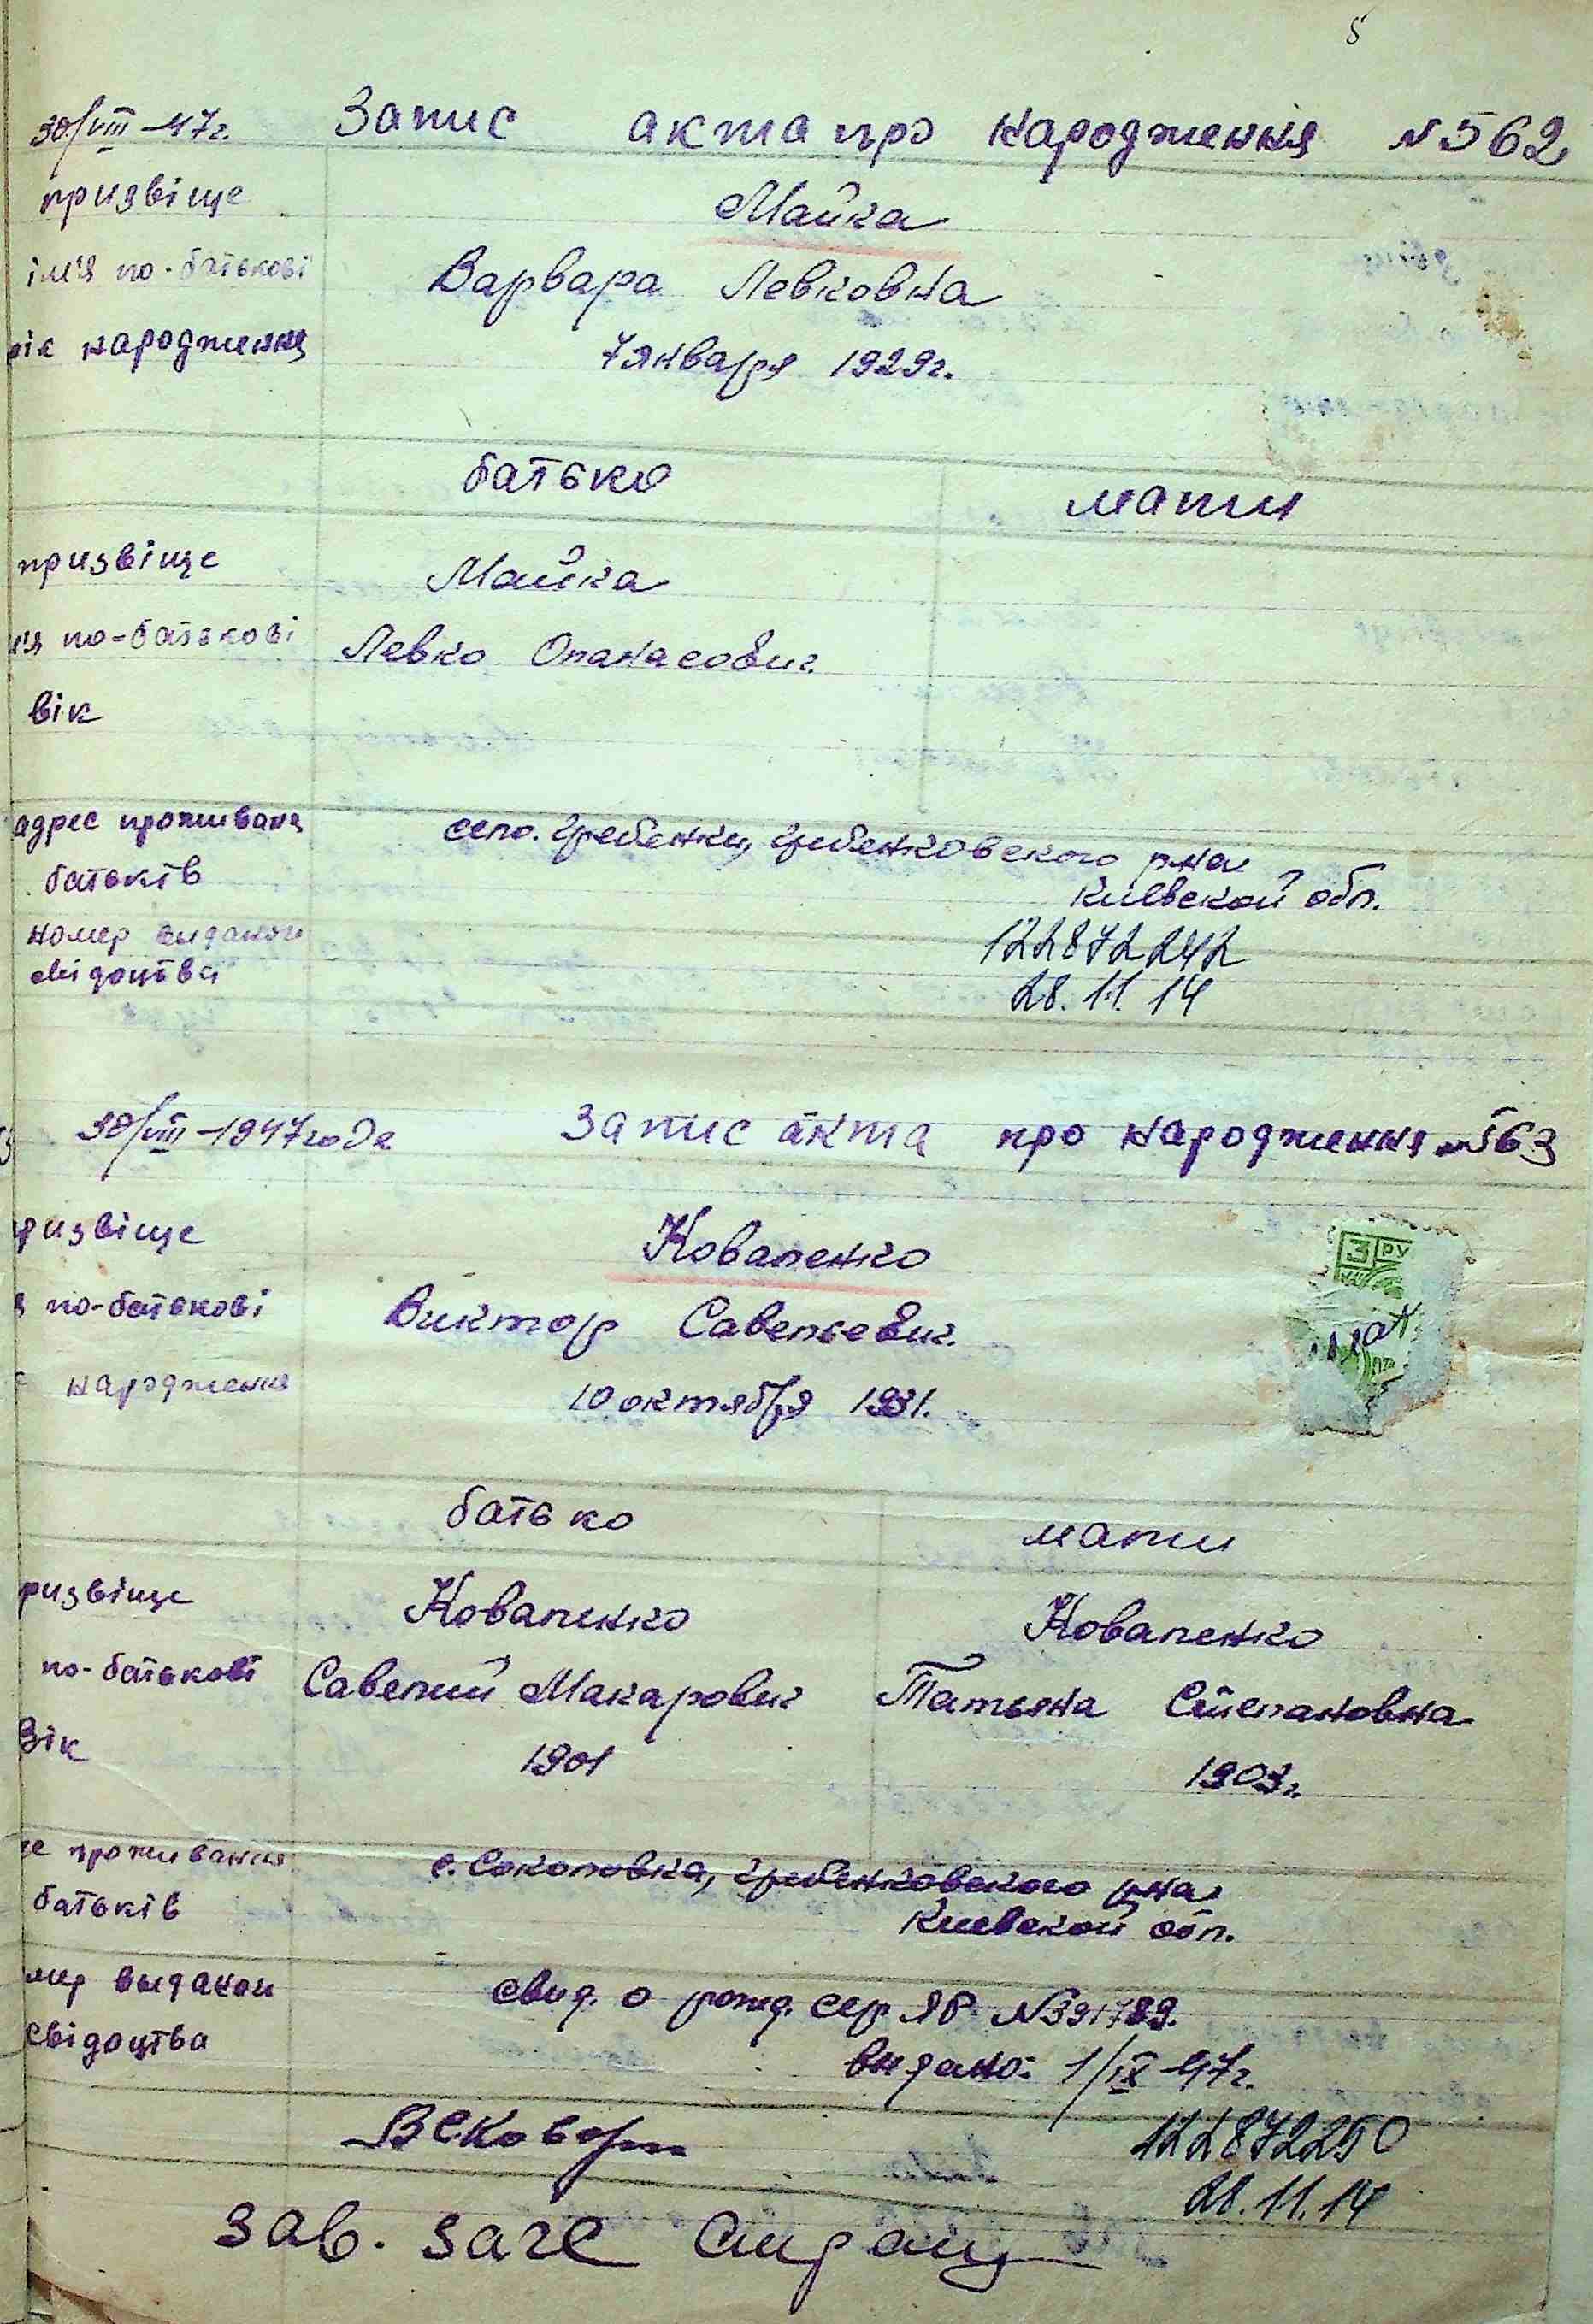 5
30/VIII-47г. Запис акта про народження №562
призвіще Майка
ім'я по-батькові Варвара Левковна
рік народження 7 января 1929г.
батько мати
призвіще Майка
і'я по-батькові Левко Опанасович
вік
адрес проживаня село. Гребенки, Гребенковского р-на
батьків Киевской обл.
номер выданои 122872242
свідоцтва 28.11.14
30/VIII-1947года Запис акта про народження №563
ризвіще Коваленко
я по-батькові Виктор Савельевич.
народження 10 октября 1931.
3 РУ
батько мати
ризвіще Коваленко Коваленко
по-батькові Савелий Макарович Татьяна Степановна
Вік 1901 1903г.
це проживання с. Соколовка, Гребенковского р-на
батьків Киевской обл.
мер выданои свид. о рожд. сер ЯР №391789.
свідоцтва видано: 1/IX-47г.
122872250
28.11.14
зав. загс